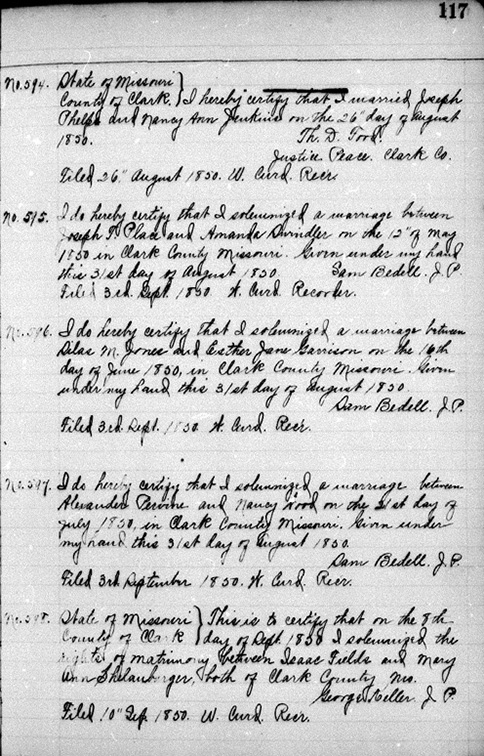 117
No. 594. State of Missouri }
County of Clark } I hereby certify that I married Joseph
Phelps and Nancy Ann Jenkins on the 26" day of August
1850. Th. D. Tood.
Justice Peace. Clark Co.
Filed 26" August 1850. W. Curd. Recr.
No. 515. I do hereby certify that I solemnized a marriage between
Joseph T. Place and Amanda Swindler on the 12" of May
1850 in Clark County Missouri. Given under my hand
this 31st day of August 1850. Sam Bedell. J.P.
Filed 3rd. Sept. 1850. W. Curd Recorder.
No. 596. I do hereby certify that I solemnized a marriage between
Silas M. Jones and Esther Jane Garrison on the 16th
day of June 1850, in Clark County Missouri. Given
under my hand this 31st day of August 1850.
Sam Bedell. J.P.
Filed 3rd. Sept. 1850 W. Curd. Recr.
No. 597. I do hereby certify that I solemnized a marriage between
Alexander Pervine and Nancy Wood on the 21st day of
July 1850, in Clark County Missouri. Given under
my hand this 31st day of August 1850.
Sam Bedell. J.P.
Filed 3rd September 1850. W. Curd. Recr.
No. 598. State of Missouri } This is to certify that on the 8th
County of Clark } day of Sept. 1850 I solemnized the
rights of matrimony between Isaac Fields and Mary
Ann Shelanberger, both of Clark County Mo.
George Keller. J.P.
Filed 10" Sep. 1850. W. Curd. Recr.